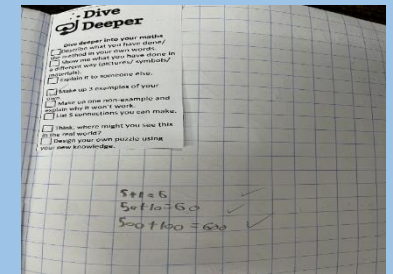 Dive
Deeper
Dive deeper into your maths
Describe what you have done/
the method in your own words.
Show me what you have done in
a different way (pictures/ symbols/
materials).
Explain it to someone else.
Make up 3 examples of your
own
Make up one non-example and
explain why it won't work.
List 5 connections you can make.
Think, where might you see this
in the real world?
Design your own puzzle using
your new knowledge.
5+1=6
50+10=60
500+100=600